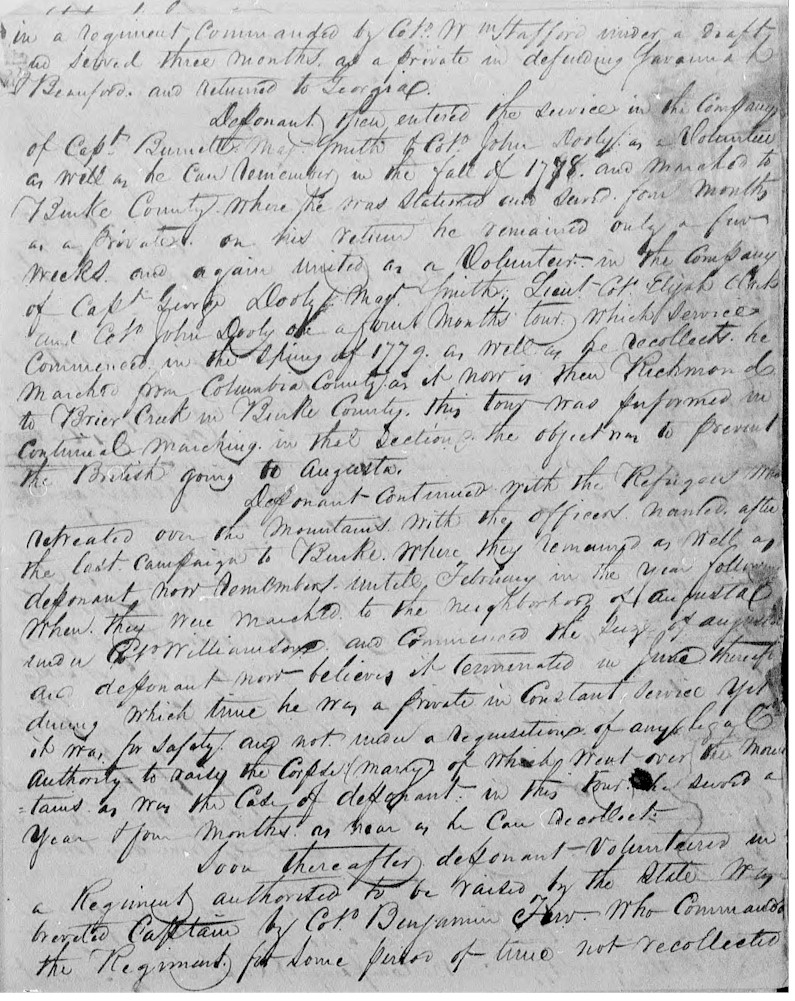 in a regiment Commanded by Colo. Wm Stafford under a draft
and served three months. as a private in defending Savannah
Beauford. and returned to Georgia.
Deponant, then entered the service in the Company
of Capt. Burnett Maj. Smith & Colo. John Dooly. as a Volunteer
as well as he can remember, in the fall of 1778. and marched to
Burke County. where he was stationed and served four months
as a private. on his return he remained only a few
weeks. and again united, as a Volunteer. in the Company
of Capt. George Dooly, Maj. Smith, Lieut. Colo. Elijah Clark
and Colo. John Dooly on a four months tour, which service
Commenced in the Spring of 1779. as well as he recollects. he
marched from Columbia County as it now is then Richmond
to Brier Creek in Burke County. this tour was performed in
continual marching. in that Section. the object was to prevent
the British going to Augusta.
Deponant continued with the Refugees who
retreated over the mountains with the officers. named. after
the last campaign to Burke. where they remained as well as
deponant now remembers. until, February in the year following
when. they were marched. to the neighborhood of Augusta
under Colo. Williamson. and commenced the Seige of augusta
and deponant now believes it terminated in June thereafter
during which time he was a private in Constant, Service Yet
it was for safety. and not under a requisition of any legal
authority to raise the Corpse (many) of which, went over the moun
=tains. as was the Case of deponant. in this tour. he served a
Year & four months. as near as he can recollect.
Soon thereafter, deponant Volunteered in
a Regiment, authorised to be raised by the State Was
breveted Captain by Colo. Benjamin Few. Who Commanded
the Regiment, for some period of time not recollected